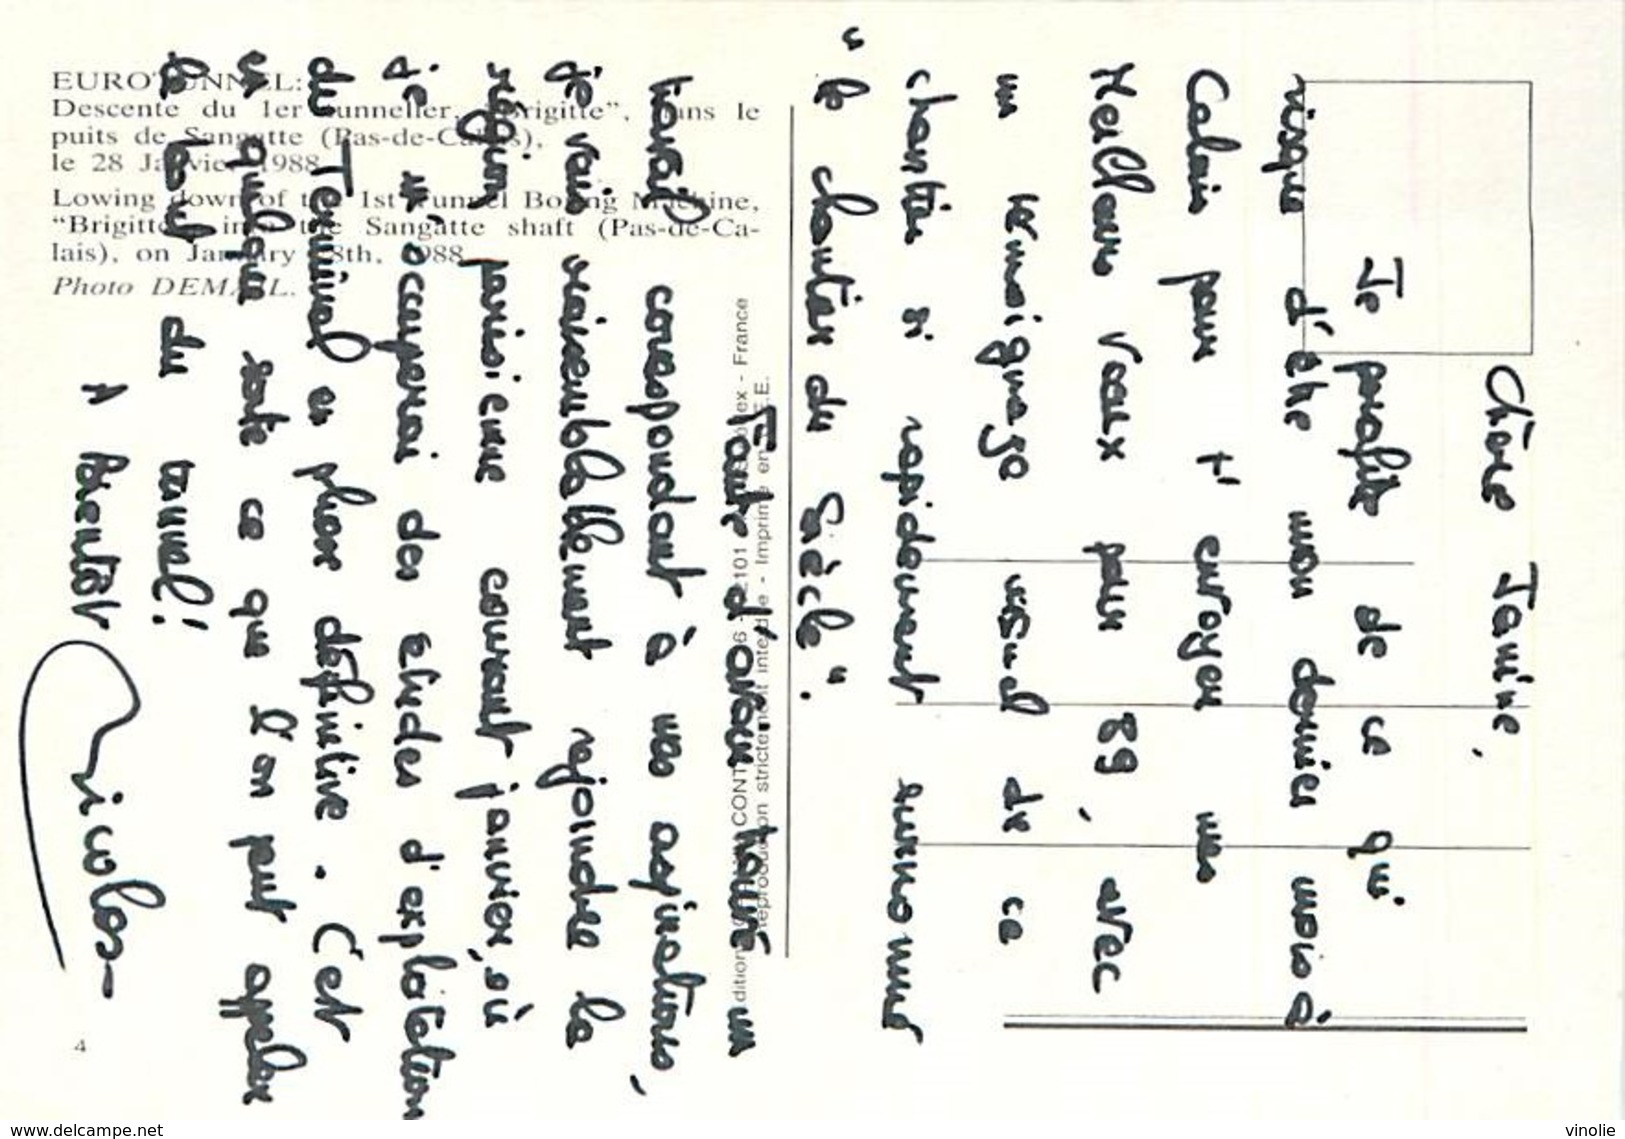 EUROTUNNEL:
Descente du 1er tunnelier, "Brigitte", dans le
puits de Sangatte (Pas-de-Calais),
le 28 Janvier 1988
Lowing down of the 1st Tunnel Boring Machine,
"Brigitte" into the Sangatte shaft (Pas-de-Ca-
lais), on January 28th, 1988
Photo DEMAIL.
Reproduction strictement interdite - Imprimé en C.E.E.
4
Chère Janine,
Je profite de ce qui
risque d'être mon dernier mois à
Calais pour t'envoyer mes
Meilleurs Vœux pour 89, avec
un témoignage visuel de ce
chantier si rapidement surnommé
"le chantier du Siècle".
Faute d'avoir trouvé un
travail correspondant à mes aspirations,
je vais vraisemblablement rejoindre la
région parisienne courant janvier, où
je m'occuperai des études d'exploitation
du Terminal en phase définitive. C'est
en quelque sorte ce que l'on peut appeler
le bout du tunnel!
A Bientôt
Nicolas
www.delcampe.net
vinolie